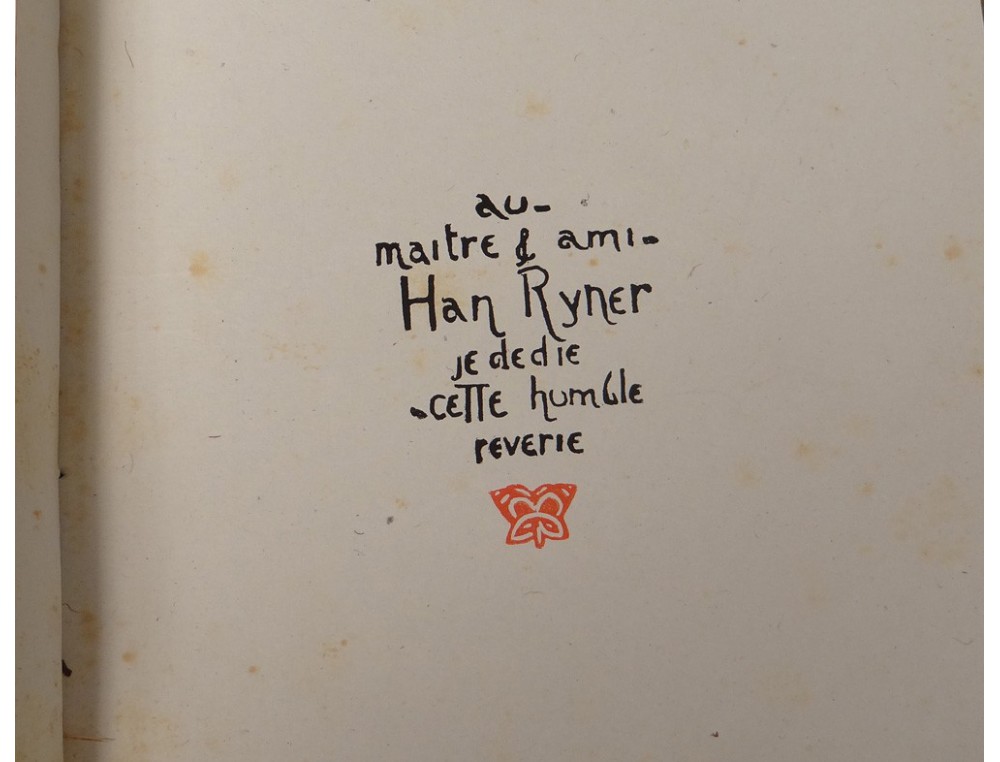 au-
maitre & ami-
Han Ryner
je dedie
cette humble
reverie